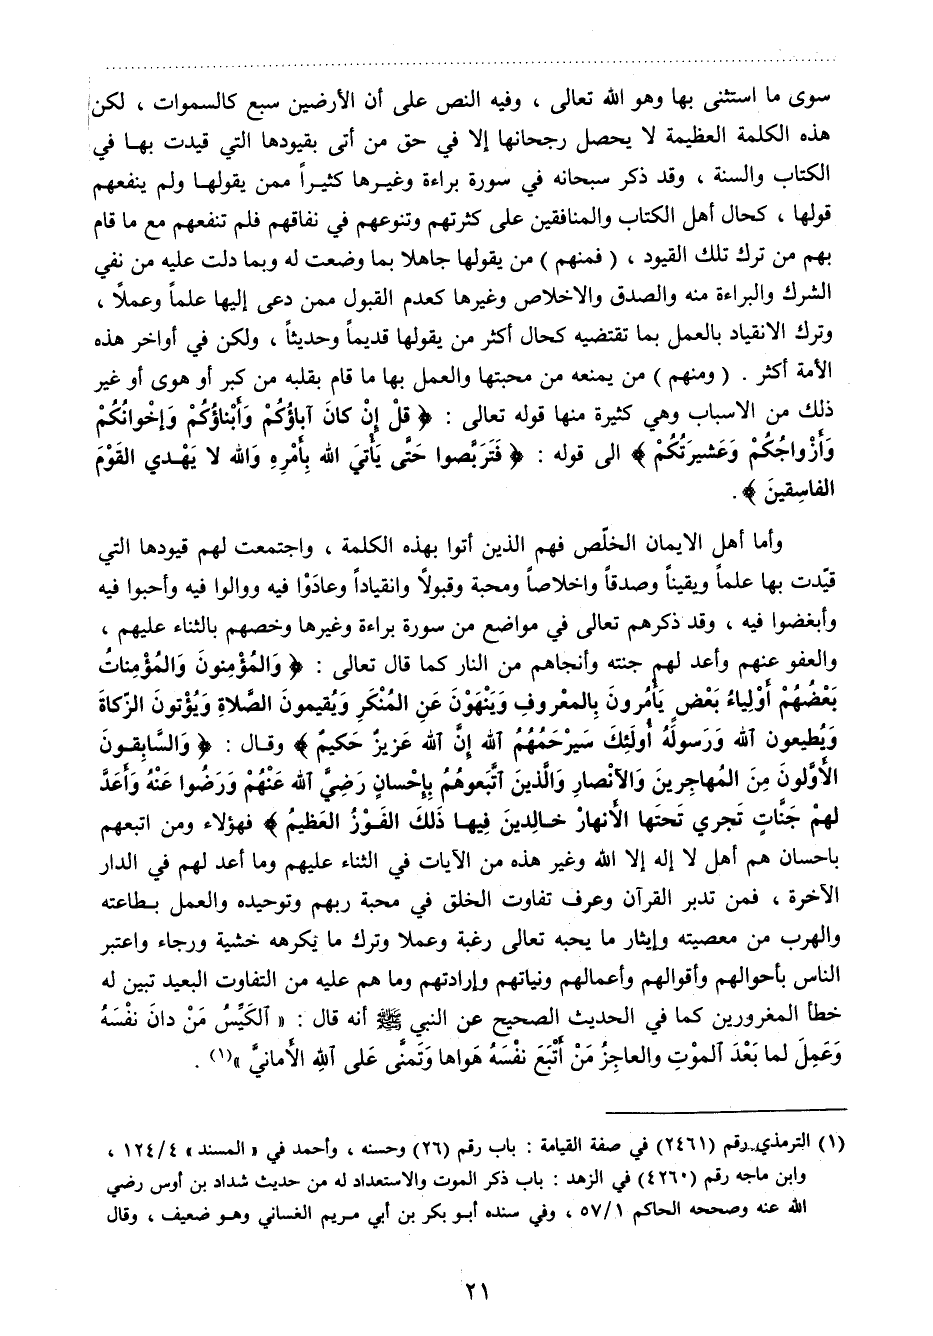 سوى ما استثنى بها وهو الله تعالى ، وفيه النص على أن الأرضين سبع كالسموات ، لكن
هذه الكلمة العظيمة لا يحصل رجحانها إلا في حق من أتى بقيودها التي قيدت بهـا في
الكتاب والسنة ، وقد ذكر سبحانه في سورة براءة وغيـرها كثيـراً ممن يقولهـا ولم ينفعهم
قولها ، كحال أهل الكتاب والمنافقين على كثرتهم وتنوعهم في نفاقهم فلم تنفعهم مع ما قام
بهم من ترك تلك القيود ، ( فمنهم ) من يقولها جاهلا بما وضعت له وبما دلت عليه من نفي
الشرك والبراءة منه والصدق والاخلاص وغيرها كعدم القبول ممن دعى إليها علماً وعملًا ،
وترك الانقياد بالعمل بما تقتضيه كحال أكثر من يقولها قديماً وحديثاً ، ولكن في أواخر هذه
الأمة أكثر . ( ومنهم ) من يمنعه من محبتها والعمل بها ما قام بقلبه من كبر أو هوى أو غير
ذلك من الاسباب وهي كثيرة منها قوله تعالى : ﴿ قلْ إِنْ كانَ آباؤُكُمْ وَأَبْناؤُكُمْ وَإِخْوانُكُمْ
وَأَزْواجُكُمْ وَعَشيرَتُكُمْ ﴾ الى قوله : ﴿ فَتَرَبَّصوا حَتَّى يَأْتيَ الله بِأَمْرِهِ وَالله لا يَهْـدي القَوْمَ
الفاسِقينَ ﴾ .
وأما أهل الايمان الخلّص فهم الذين أتوا بهذه الكلمة ، واجتمعت لهم قيودها التي
قيّدت بها علماً ويقيناً وصدقاً واخلاصاً ومحبة وقبولًا وانقياداً وعادَوْا فيه ووالوا فيه وأحبوا فيه
وأبغضوا فيه ، وقد ذكرهم تعالى في مواضع من سورة براءة وغيرها وخصهم بالثناء عليهم ،
والعفو عنهم وأعد لهم جنته وأنجاهم من النار كما قال تعالى : ﴿ وَالمُؤْمِنونَ وَالمُؤْمِناتُ
بَعْضُهُمْ أَوْلِياءُ بَعْضٍ يَأْمُرونَ بِالمعْروفِ وَيَنْهَوْنَ عَنِ المُنْكَرِ وَيُقيمونَ الصَّلاةَ وَيُؤْتونَ الزّكاةَ
وَيُطيعون الله وَرَسولَهُ أُولَئِكَ سيَرْحَمُهُمُ الله إِنَّ الله عَزيزٌ حَكيمٌ ﴾ وقال : ﴿ وَالسَّابِقـونَ
الأَوَّلونَ مِنَ المُهاجِرينَ وَالأنْصارِ وَالَّذينَ اتَّبَعوهُمْ بِإِحْسانٍ رَضِيَ الله عَنْهُمْ وَرَضُوا عَنْهُ وَأَعَدَّ
لهمْ جَنَّاتٍ تَجري تَحتَها الأَنهارُ خـالِدينَ فِيهـا ذَلكَ الفَوْزُ العَظيمُ ﴾ فهؤلاء ومن اتبعهم
باحسان هم أهل لا إله إلا الله وغير هذه من الآيات في الثناء عليهم وما أعد لهم في الدار
الآخرة ، فمن تدبر القرآن وعرف تفاوت الخلق في محبة ربهم وتوحيده والعمل بـطاعته
والهرب من معصيته وإيثار ما يحبه تعالى رغبة وعملا وترك ما يكرهه خشية ورجاء واعتبر
الناس بأحوالهم وأقوالهم وأعمالهم ونياتهم وإرادتهم وما هم عليه من التفاوت البعيد تبين له
خطأ المغرورين كما في الحديث الصحيح عن النبي ﷺ أنه قال : « الكَيِّسُ مَنْ دانَ نفْسَهُ
وَعَمِلَ لما بَعْدَ الموْتِ والعاجِزُ مَنْ أَتْبَعَ نَفْسَهُ هَواها وَتَمنَّى عَلى اللهِ الأَمانيَّ »(١) .
(١) الترمذي رقم (٢٤٦١) في صفة القيامة : باب رقم (٢٦) وحسنه ، وأحمد في « المسند » ١٢٤/٤ ،
وابن ماجه رقم (٤٢٦٠) في الزهد : باب ذكر الموت والاستعداد له من حديث شداد بن أوس رضي
الله عنه وصححه الحاكم ٥٧/١ ، وفي سنده أبـو بكر بن أبي مـريم الغساني وهـو ضعيف ، وقال
٢١